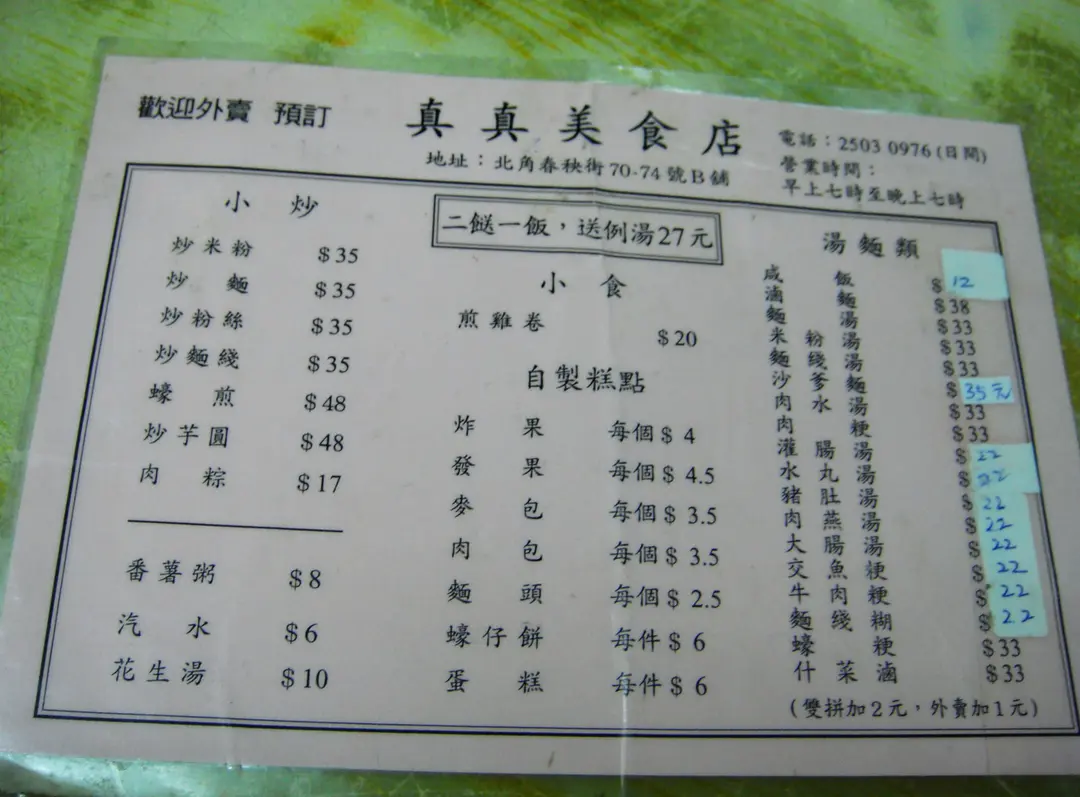 歡迎外賣 預訂
真真美食店
地址：北角春秧街70-74號B舖
電話：2503 0976 (日間)
營業時間：
早上七時至晚上七時
小炒
炒米粉 $35
炒麵 $35
炒粉絲 $35
炒麵綫 $35
蠔煎 $48
炒芋圓 $48
肉粽 $17
番薯粥 $8
汽水 $6
花生湯 $10
二餸一飯，送例湯27元
小食
煎雞卷 $20
自製糕點
炸果 每個 $ 4
發果 每個 $ 4.5
麥包 每個 $ 3.5
肉包 每個 $ 3.5
麵頭 每個 $ 2.5
蠔仔餅 每件 $ 6
蛋糕 每件 $ 6
湯麵類
咸飯 $ 12
滷麵 $38
麵湯 $33
米粉湯 $33
麵綫湯 $33
沙爹麵 $ 35元
肉水湯 $33
肉粳 $33
灌腸湯 $ 22
水丸湯 $ 22
豬肚湯 $ 22
肉燕湯 $ 22
大腸湯 $ 22
交魚粳 $ 22
牛肉粳 $ 22
麵綫糊 $ 22
蠔粳 $33
什菜滷 $33
(雙拼加2元，外賣加1元)